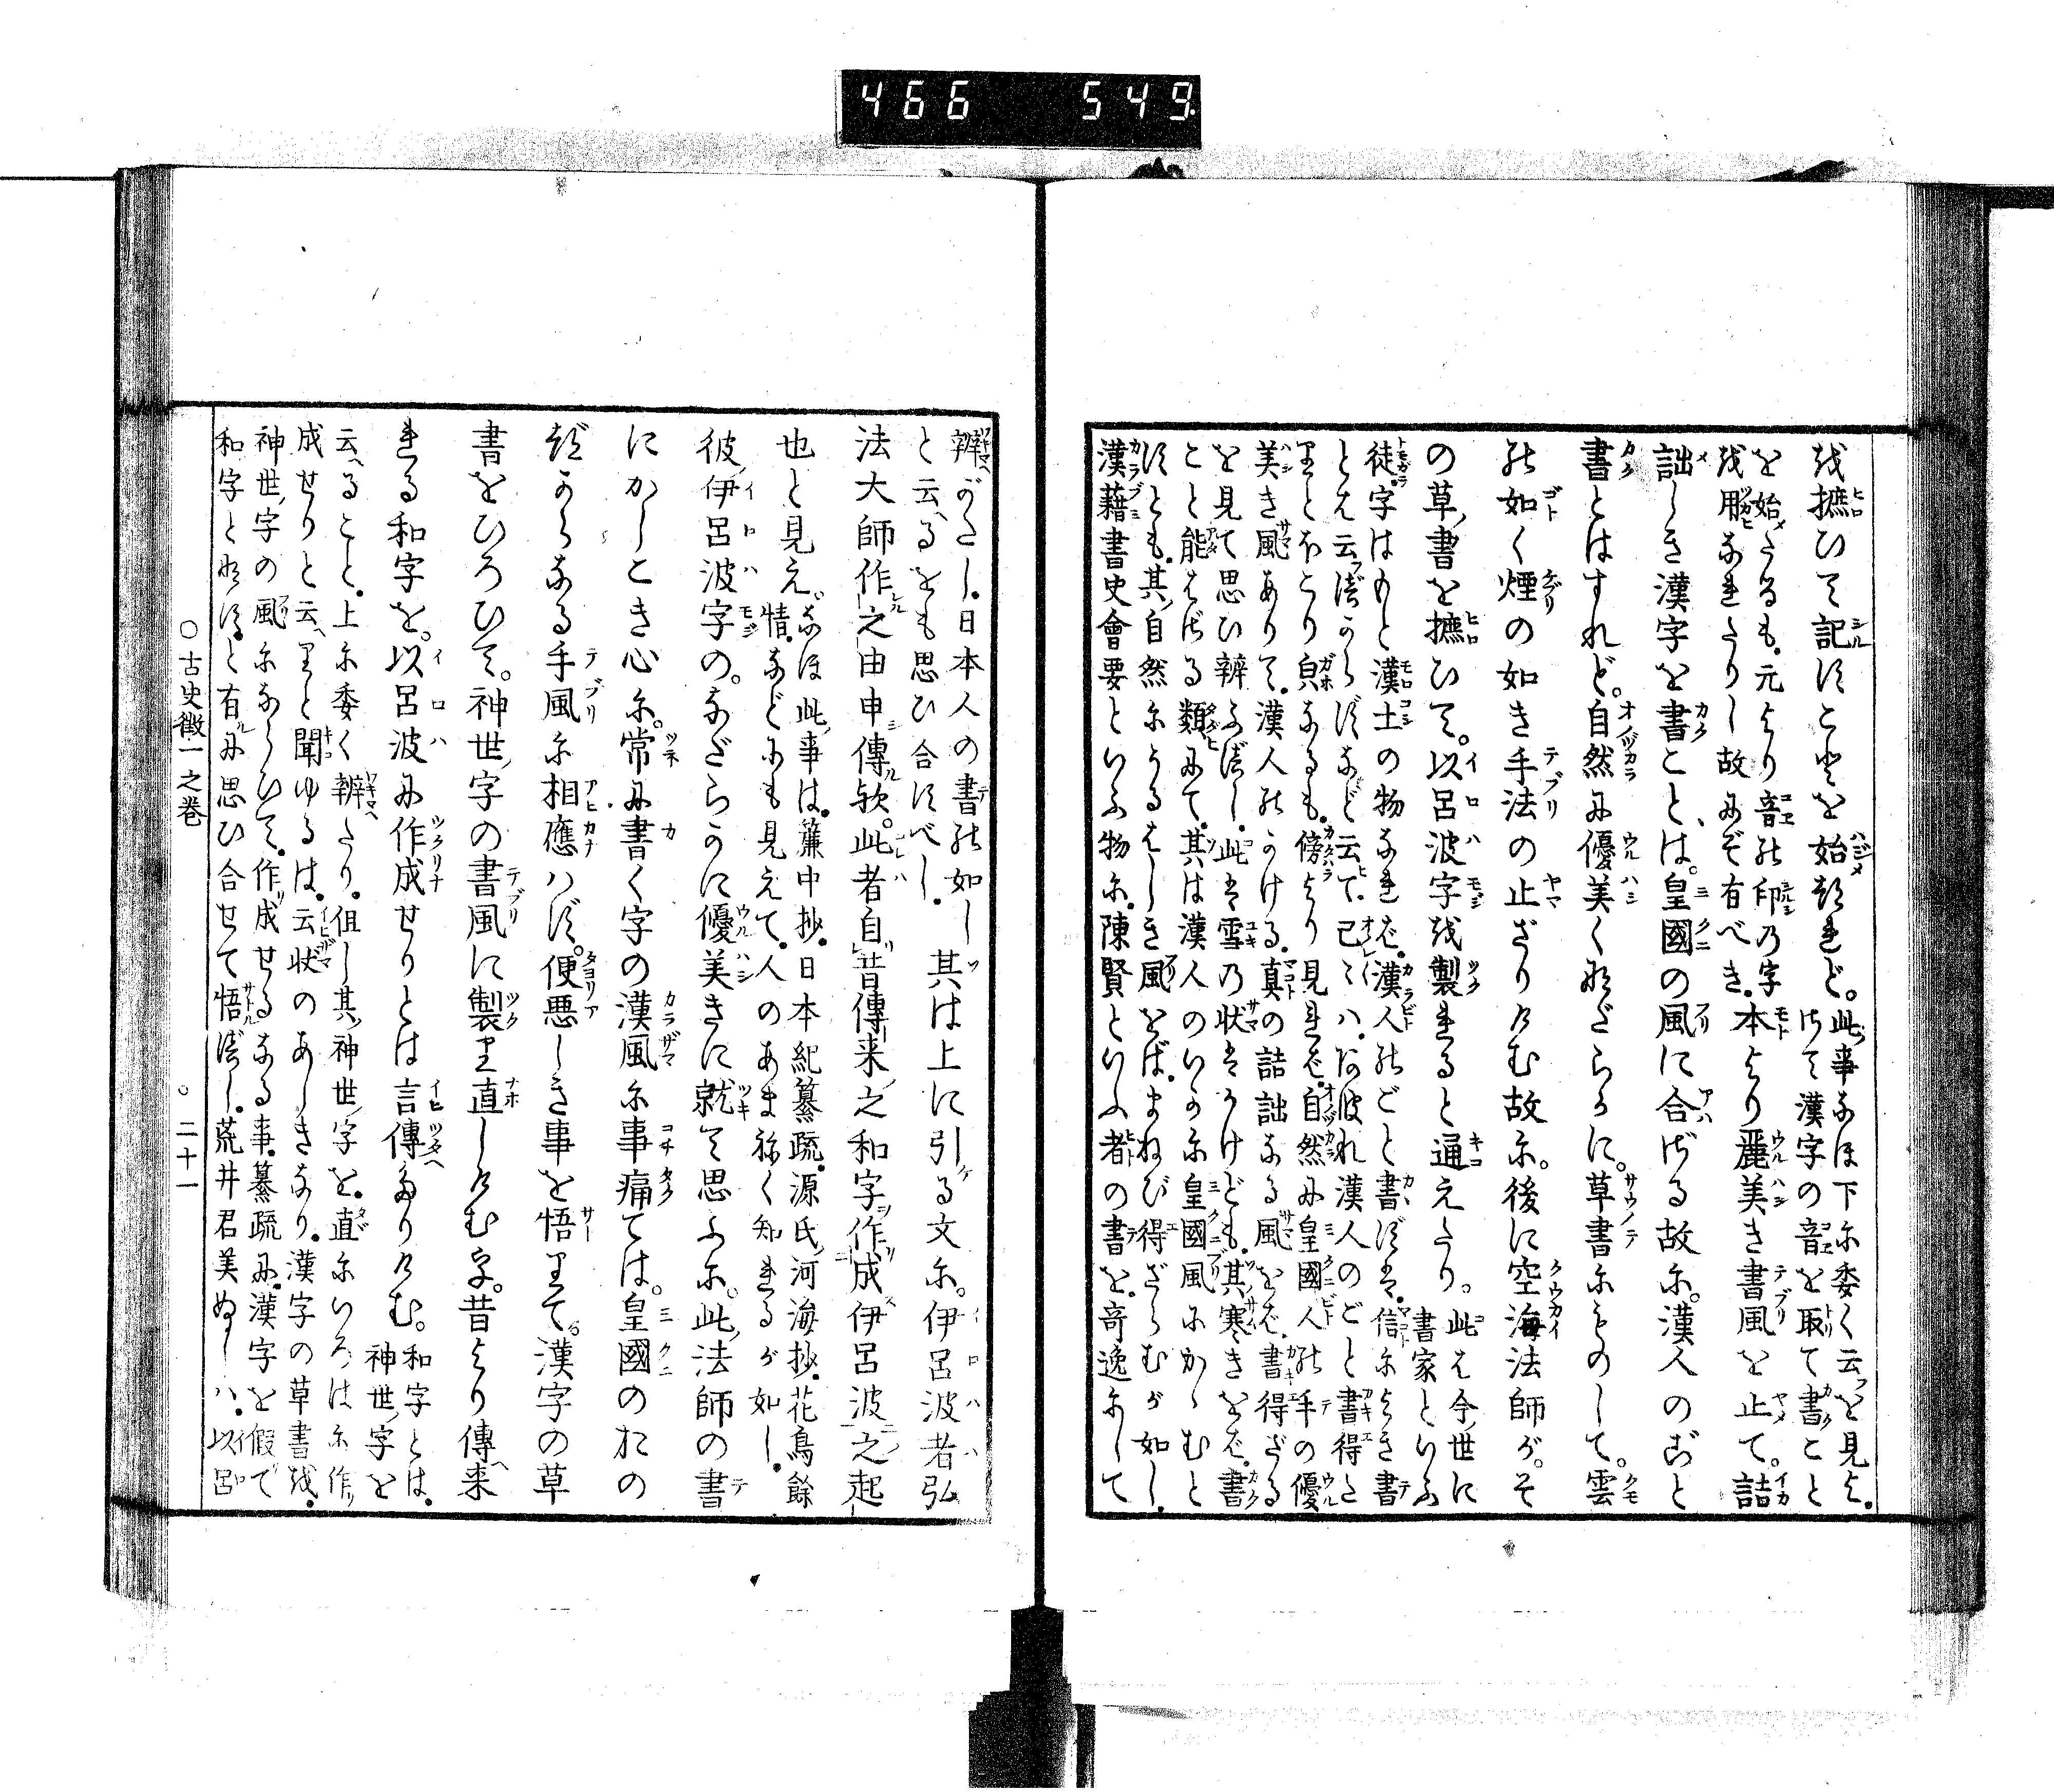 466 549
を摭ひて記すことを始つれど。此事なほ下に委く云を見よ。
さて漢字の音を取て書こと
を始たるも。元より音の印の字
を用なれたりし故にぞ有べき。本より麗美き書風を止て。詰
詘しき漢字を書ことは。皇國の風に合ざる故に。漢人のごと
書とはすれど。自然に優美くなだらかに。草書にものして。雲
の如く煙の如き手法の止ざりけむ故に。後に空海法師が。そ
の草書を摭ひて。以呂波字を製れると通えたり。此は今世に
書家といふ
徒。字はもと漢土の物なれば。漢人のごと書ずは。信によき書
とは云べからずなど云て。己々は。あはれ漢人のごと書得た
りとほこり㒵なるも。傍より見れば。自然に皇國人の手の優
美き風ありて。漢人のかける。真の詰詘なる風をば。書得ざる
を見て思ひ辨ふべし。此は雪の状はかけども。其寒きをば。書
こと能はざる類にて。其は漢人のいかに皇國風にかゝむと
すとも。其自然にうるはしき風をば。まねび得ざらむが如し。
漢藉書史會要といふ物に。陳賢といふ者の書を。奇逸にして
辨がたし。日本人の書の如し
と云へるをも思ひ合すべし。其は上に引る文に。伊呂波者弘
法大師作之由申傳欤。此者自昔傳来之和字作成伊呂波之起
也と見え。なほ此事は。簾中抄。日本紀纂疏。源氏河海抄。花鳥餘
情。などにも見えて。人のあまねく知れるが如し。
彼伊呂波字の。なだらかに優美きに就て思ふに。此法師の書
にかしこき心に。常に書く字の漢風に事痛ては。皇國のおの
づからなる手風に相應はず。便悪しき事を悟りて。漢字の草
書をひろひて。神世字の書風に製り直しけむ字。昔より傳来
れる和字を。以呂波に作成せりとは言傳たりけむ。和字とは。
神世字を
云へること。上に委く辨へたり。但し其神世字を。直にいろはに作
成せりと云へりと聞ゆるは。云状のあしきなり。漢字の草書を。
神世字の風にならひて。作成せるなる事。纂疏に。漢字を假て
和字となすと有に思ひ合せて悟べし。荒井君美ぬしハ。以呂
〇古史徴一之巻 〇二十一